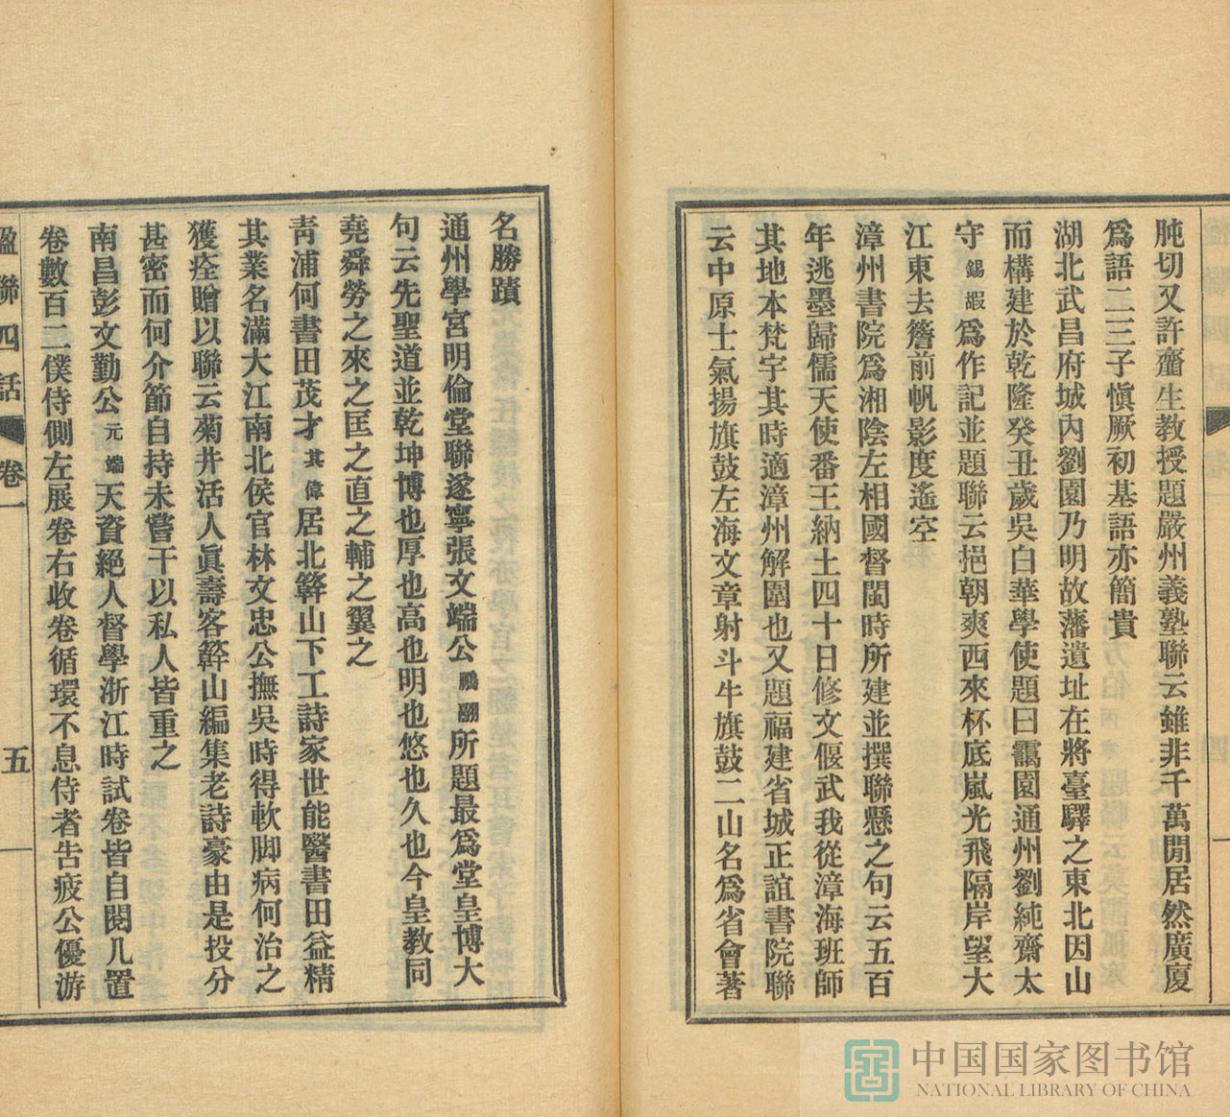 肫切又許齏生教授題嚴州義塾聯云雖非千萬閒居然廣廈
爲語二三子愼厥初基語亦簡貴
湖北武昌府城內劉園乃明故藩遺址在將臺驛之東北因山
而構建於乾隆癸丑歲吳白華學使題曰靄園通州劉純齋太
守錫嘏爲作記並題聯云挹朝爽西來杯底嵐光飛隔岸望大
江東去簷前帆影度遙空
漳州書院爲湘陰左相國督閩時所建並撰聯懸之句云五百
年逃墨歸儒天使番王納土四十日修文偃武我從漳海班師
其地本梵宇其時適漳州解圍也又題福建省城正誼書院聯
云中原士氣揚旗鼓左海文章射斗牛旗鼓二山名爲省會著
名勝蹟
通州學宮明倫堂聯遂寧張文端公鵬翮所題最爲堂皇博大
句云先聖道並乾坤博也厚也高也明也悠也久也今皇教同
堯舜勞之來之匡之直之輔之翼之
青浦何書田茂才其偉居北簳山下工詩家世能醫書田益精
其業名滿大江南北侯官林文忠公撫吳時得軟脚病何治之
獲痊贈以聯云菊井活人眞壽客簳山編集老詩豪由是投分
甚密而何介節自持未嘗干以私人皆重之
南昌彭文勤公元端天資絕人督學浙江時試卷皆自閱几置
卷數百二僕侍側左展卷右收卷循環不息侍者告疲公優游
楹聯四話
卷一
五
中国国家图书馆
NATIONAL LIBRARY OF CHINA